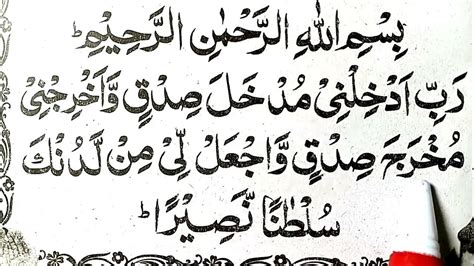 بِسْمِ اللهِ الرَّحْمٰنِ الرَّحِيْمِ ؕ
رَبِّ اَدْخِلْنِیْ مُدْخَلَ صِدْقٍ وَّاَخْرِجْنِیْ
مُخْرَجَ صِدْقٍ وَّاجْعَلْ لِّیْ مِنْ لَّدُنْكَ
سُلْطٰنًا نَّصِيْرًا ؕ